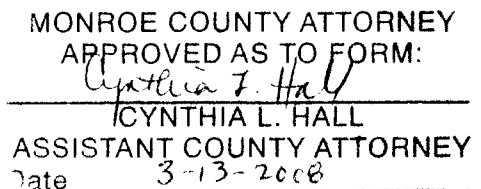 MONROE COUNTY ATTORNEY
APPROVED AS TO FORM:
Cynthia L. Hall
CYNTHIA L. HALL
ASSISTANT COUNTY ATTORNEY
Date 3-13-2008